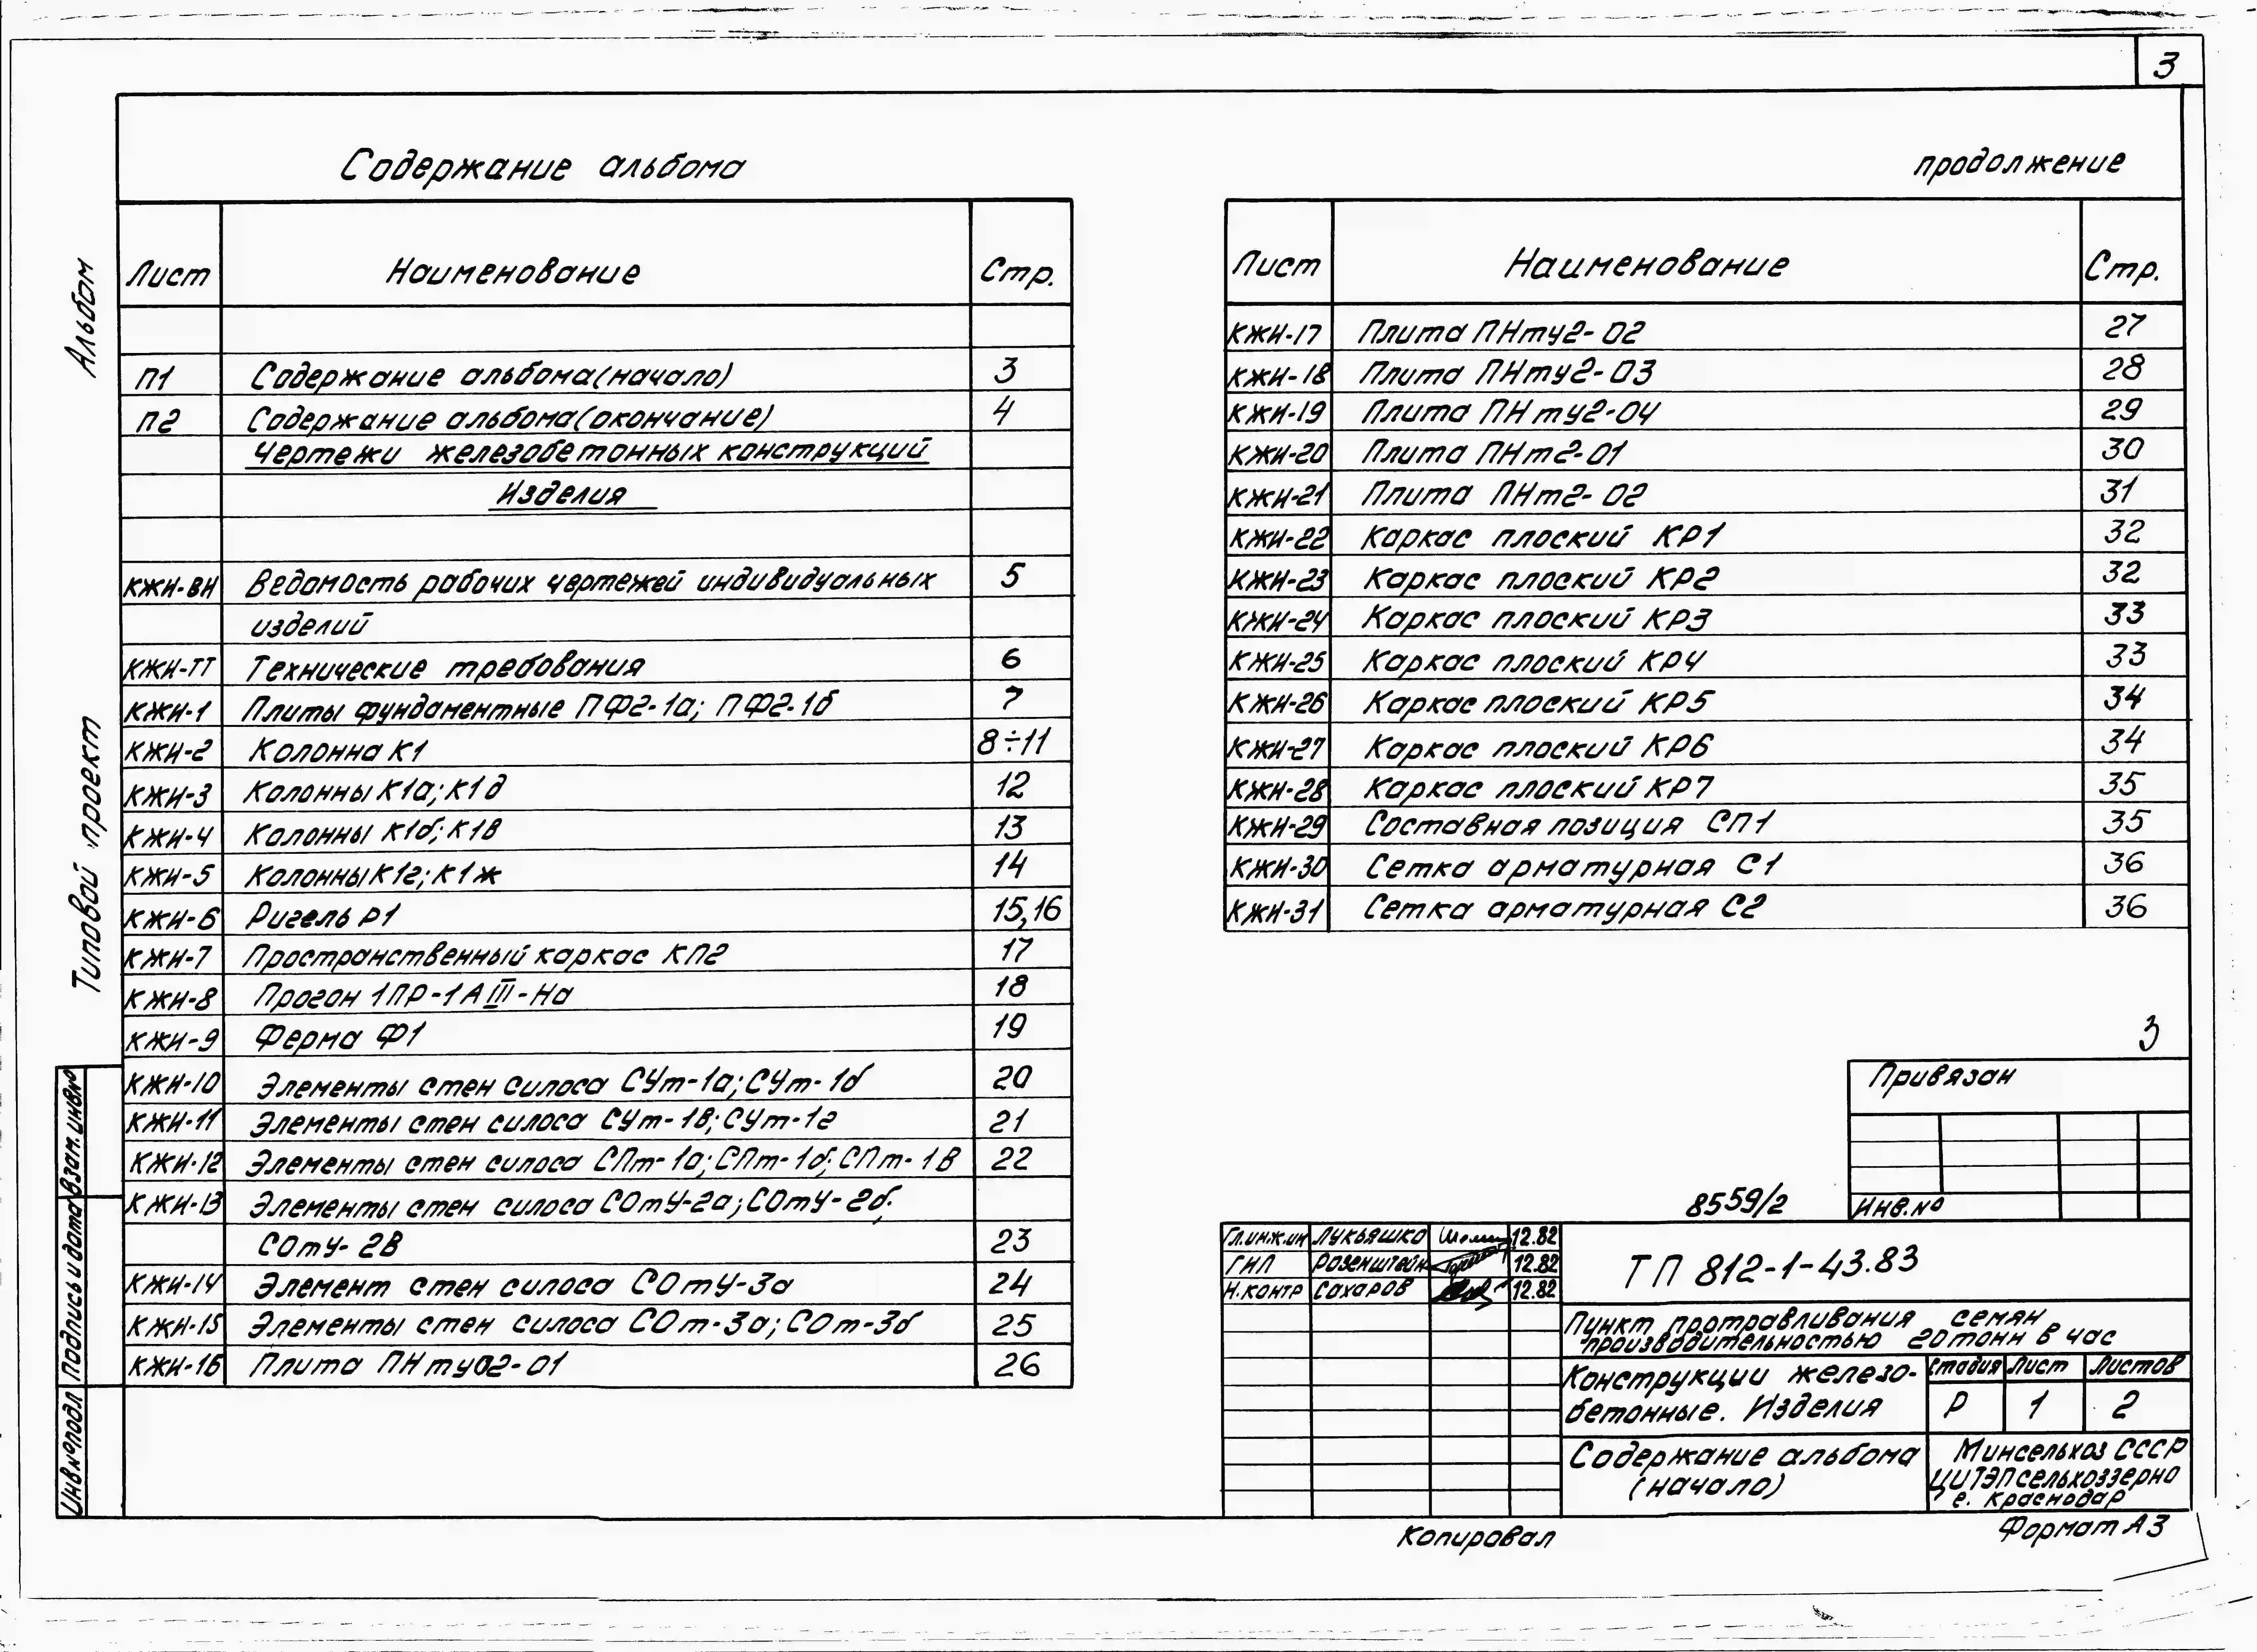 3
Содержание альбома
продолжение
Лист Наименование Стр.
П1 Содержание альбома(начало) 3
П2 Содержание альбома(окончание) 4
Чертежи железобетонных конструкций
Изделия
КЖИ-ВИ Ведомость рабочих чертежей индивидуальных 5
изделий
КЖИ-ТТ Технические требования 6
КЖИ-1 Плиты фундаментные ПФ2-1а; ПФ2-1б 7
КЖИ-2 Колонна К1 8÷11
КЖИ-3 Колонны К1а; К1д 12
КЖИ-4 Колонны К1б; К1в 13
КЖИ-5 Колонны К1г; К1ж 14
КЖИ-6 Ригель Р1 15,16
КЖИ-7 Пространственный каркас КП2 17
КЖИ-8 Прогон 1ПР-1АIII-На 18
КЖИ-9 Ферма Ф1 19
КЖИ-10 Элементы стен силоса СУт-1а; СУт-1б 20
КЖИ-11 Элементы стен силоса СУт-1в; СУт-1г 21
КЖИ-12 Элементы стен силоса СПт-1а; СПт-1б; СПт-1в 22
КЖИ-13 Элементы стен силоса СОтУ-2а; СОтУ-2б;
СОтУ-2в 23
КЖИ-14 Элемент стен силоса СОтУ-3а 24
КЖИ-15 Элементы стен силоса СОт-3а; СОт-3б 25
КЖИ-16 Плита ПНтуО2-01 26
Лист Наименование Стр.
КЖИ-17 Плита ПНту2-02 27
КЖИ-18 Плита ПНту2-03 28
КЖИ-19 Плита ПНту2-04 29
КЖИ-20 Плита ПНт2-01 30
КЖИ-21 Плита ПНт2-02 31
КЖИ-22 Каркас плоский КР1 32
КЖИ-23 Каркас плоский КР2 32
КЖИ-24 Каркас плоский КР3 33
КЖИ-25 Каркас плоский КР4 33
КЖИ-26 Каркас плоский КР5 34
КЖИ-27 Каркас плоский КР6 34
КЖИ-28 Каркас плоский КР7 35
КЖИ-29 Составная позиция СП1 35
КЖИ-30 Сетка арматурная С1 36
КЖИ-31 Сетка арматурная С2 36
3
Привязан
Инв.№
8559/2
Гл.инж.ин Лукьяшко 12.82
ГИП Розенштейн 12.82
Н.контр Сахаров 12.82
ТП 812-1-43.83
Пункт протравливания семян
производительностью 20 тонн в час
Конструкции железо-
бетонные. Изделия
Стадия Лист Листов
Р 1 2
Содержание альбома
(начало)
Минсельхоз СССР
ЦИТЭПсельхоззерно
г. Краснодар
Копировал
Формат А3
Альбом
Типовой проект
Взам.инв.№
Подпись и дата
Инв.№подл